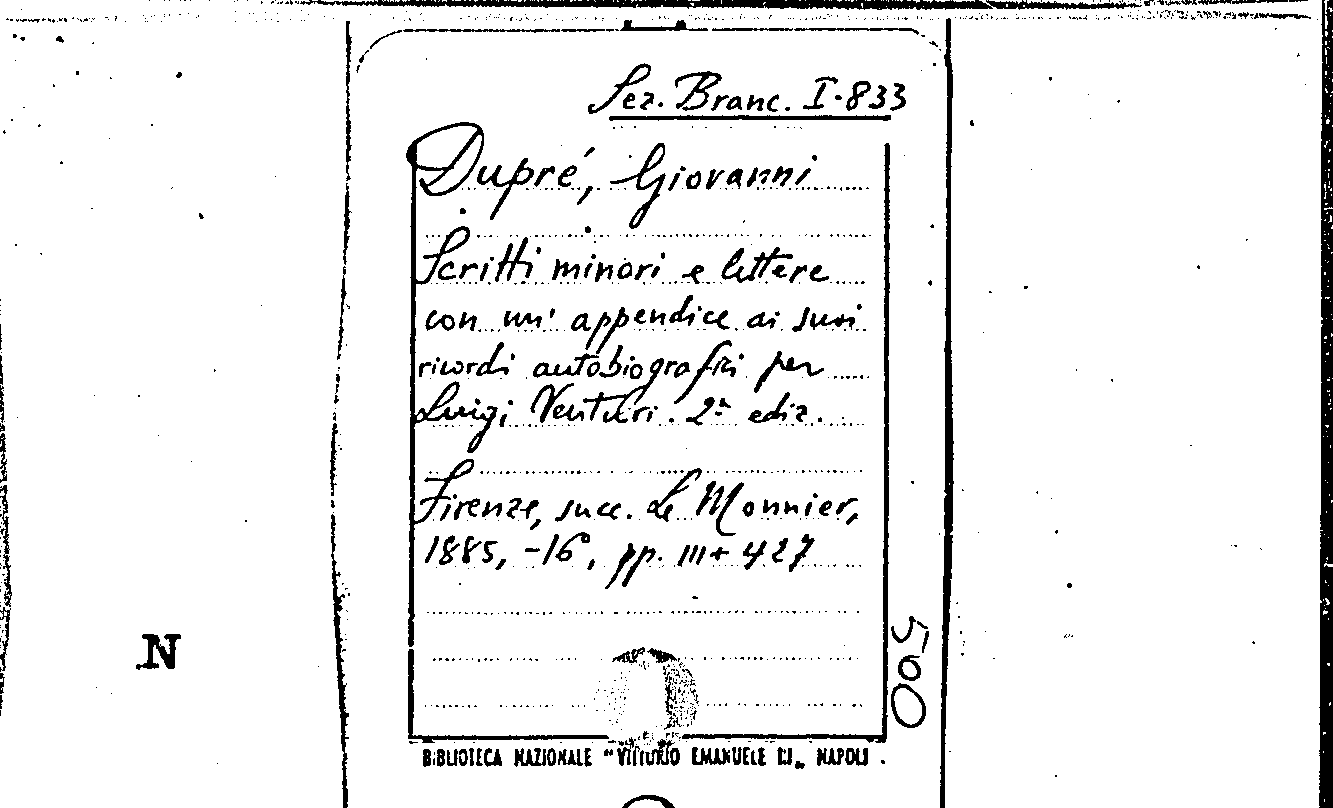 Sez. Branc. I·833
Dupré, Giovanni
Scritti minori e lettere
con un' appendice ai suoi
ricordi autobiografici per
Luigi Venturi. 2ª ediz.
Firenze, succ. Le Monnier,
1885, -16°, pp. III+ 427
500
N
BIBLIOTECA NAZIONALE "VITTORIO EMANUELE III„ NAPOLI